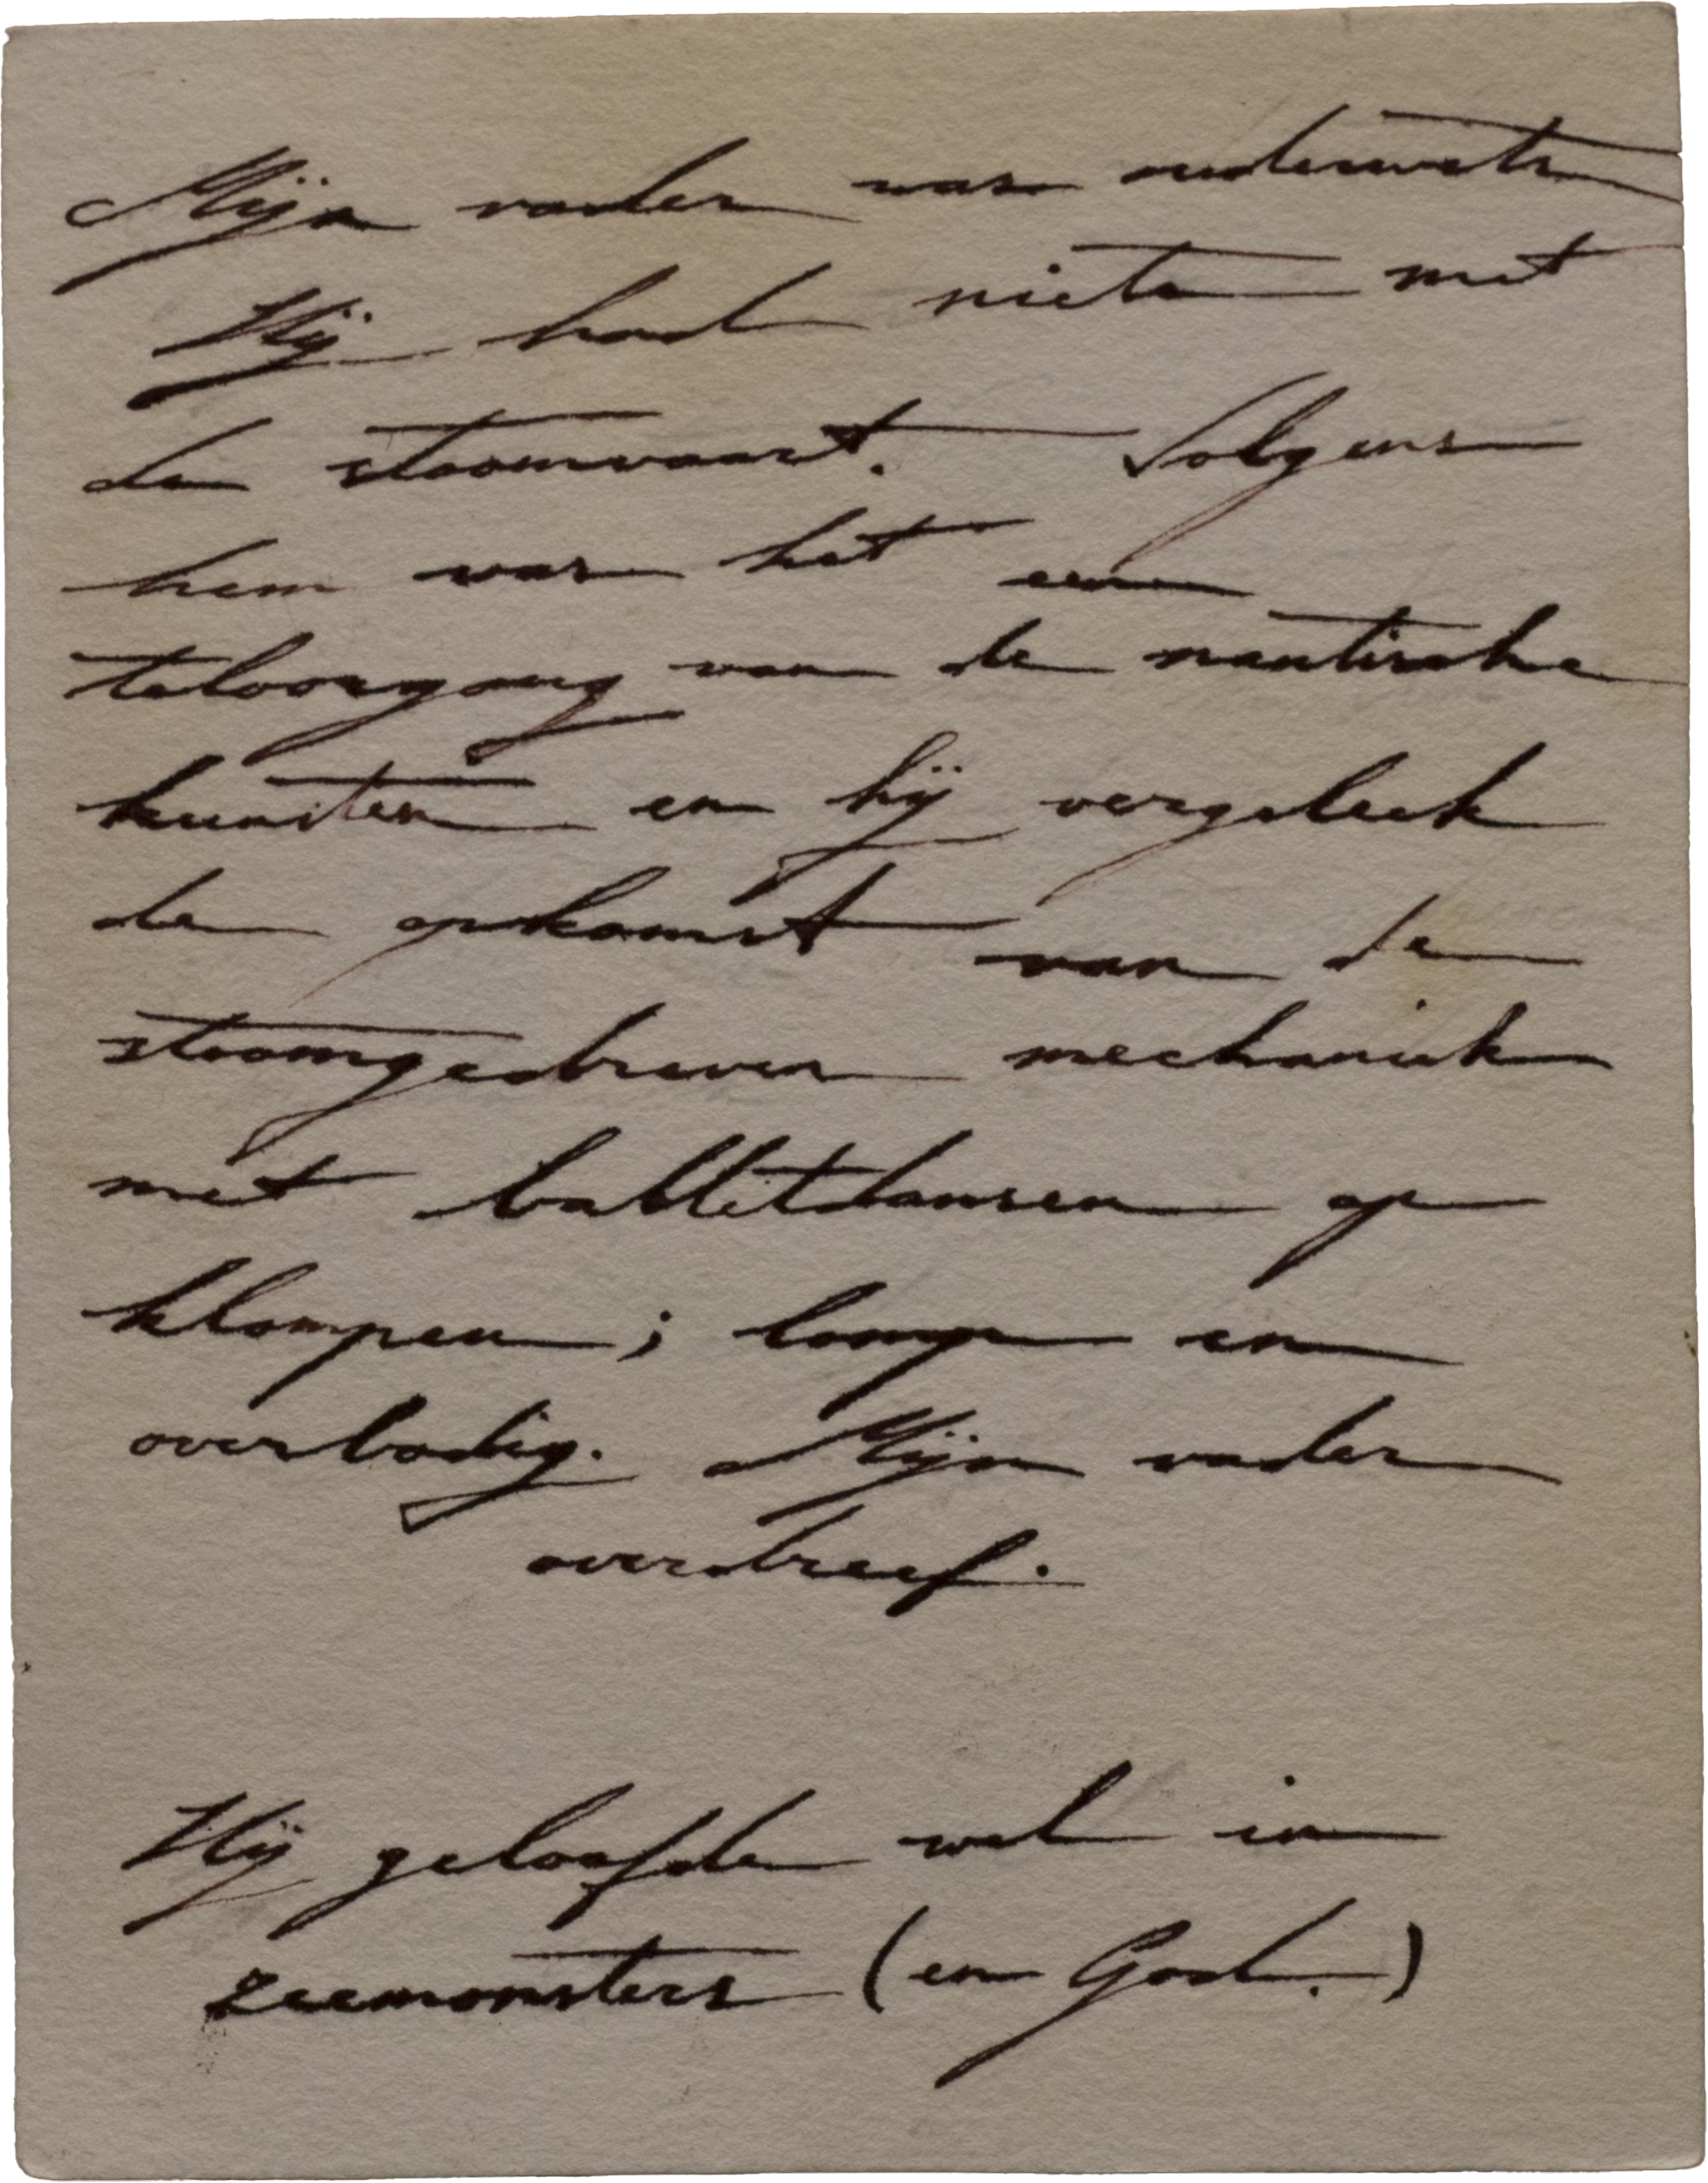 Mijn vader was ouderwets
Hij had niets met
de stoomvaart. Volgens
hem was het een
teloorgang van de nautische
kunsten en hij vergeleek
de opkomst van de
stoomgedreven mechaniek
met balletdansen op
klompen; lomp en
overbodig. Mijn vader
overdreef.
Hij geloofde wel in
zeemonsters (en God.)